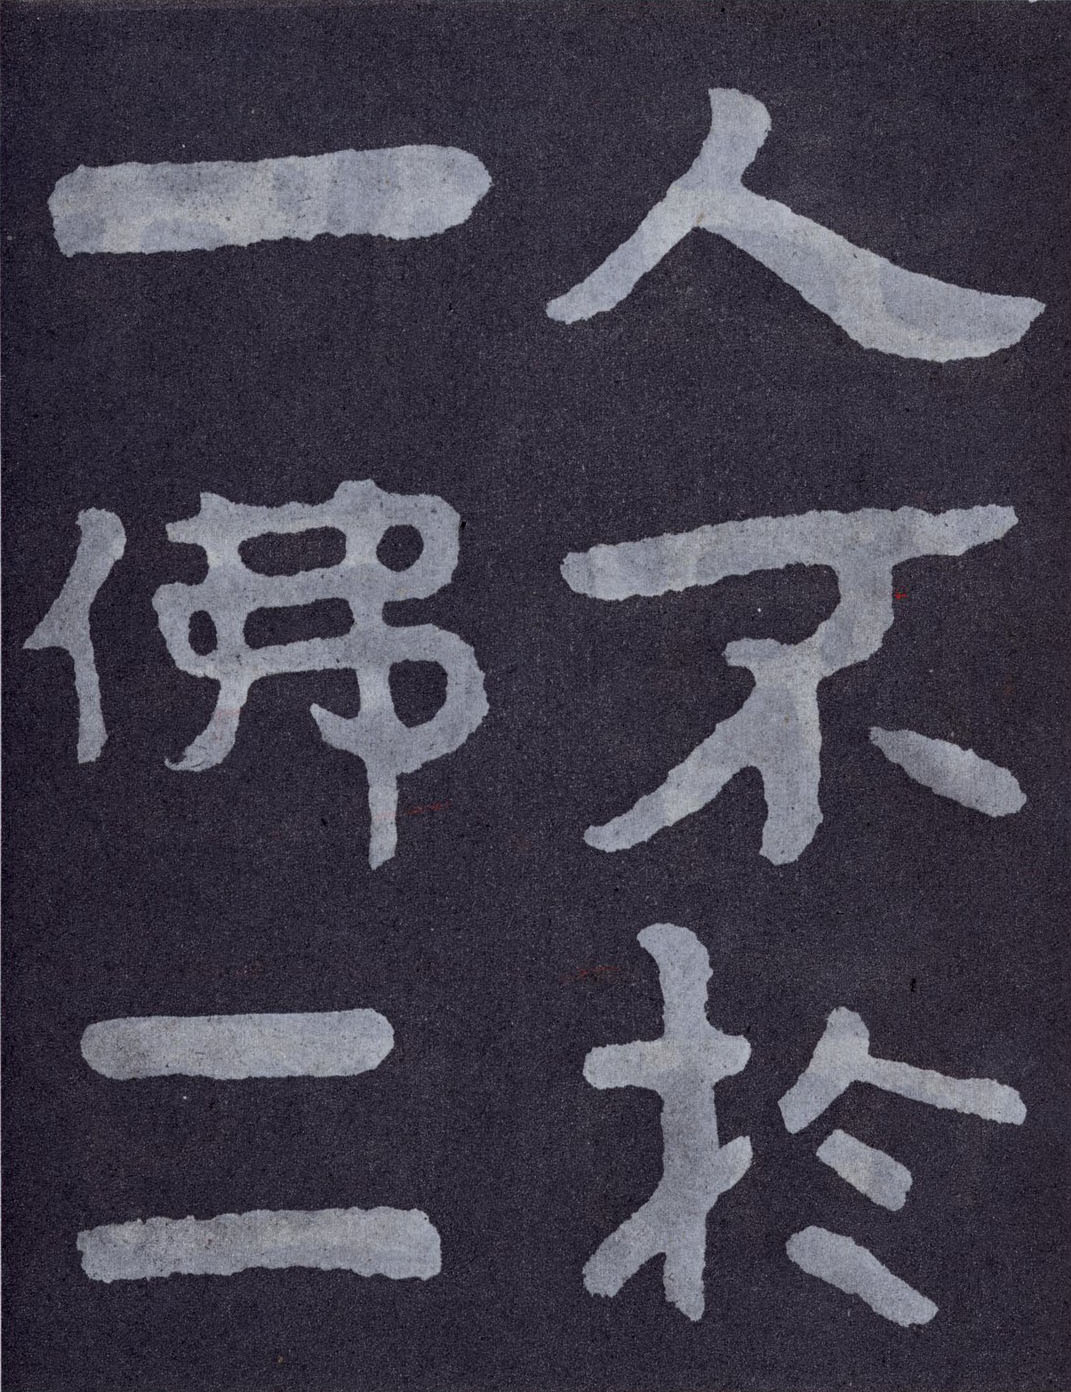 人不於
一佛二